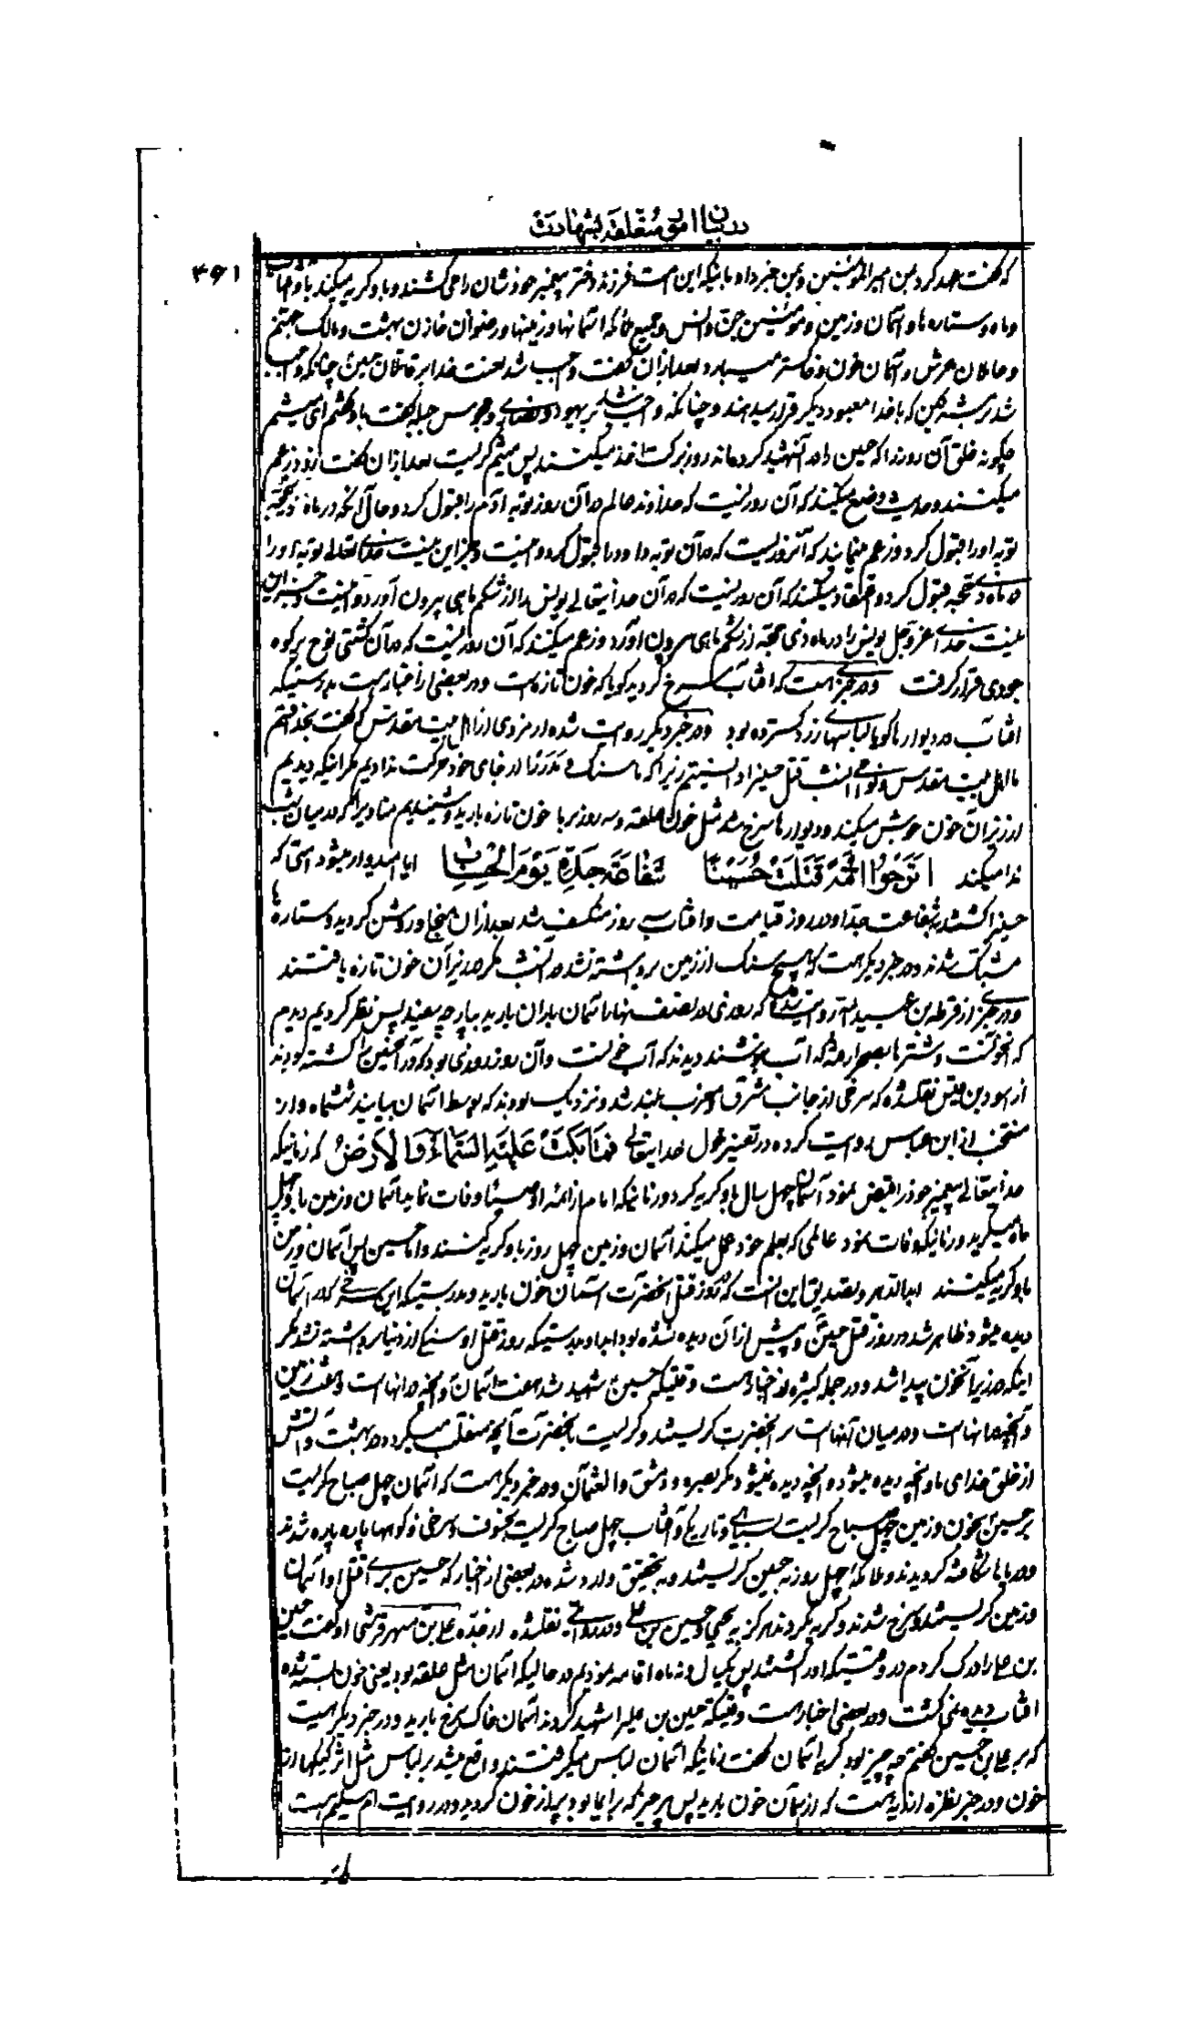 در بیان امور متعلقه بشهادت
۳۶۱
که گفت عهد کرد بمن امیر المؤمنین و بمن خبر داد باینکه این امت فرزند دختر پیغمبر خودشان را می کشند و باو گریه میکند
و ماه و ستاره ها و آسمان و زمین و مؤمنین جن و انس و جمیع ملائکه آسمانها و زمینها و رضوان خازن بهشت و مالک جهنم
و حاملان عرش و آسمان خون و خاکستر میبارد بعد ازان گفت واجب شد لعنت خدا بر قاتلان حسین چنانکه واجب
شد بر مشرکین که با خدا معبود دیگر قرار میدهند و چنانکه واجب شد بر یهود و نصاری و مجوس جبله گفت باو گفتم ای میثم
چگونه خلق آن روز را که حسین را در آن شهید کرده اند روز برکت اخذ میکنند پس میثم گریست بعد ازان گفت زود زعم
میکنند و حدیث وضع میکنند که آن روزیست که خداوند عالم در آن روز توبه آدم را قبول کرد و حال آنکه در ماه ذیحجه
توبه او را قبول کرد و زعم مینمایند که آنروزیست که در آن توبه داود را قبول کرد و نیست و جز این نیست خدای تعالی توبه او را
در ماه ذیحجه قبول کرد و اعتقاد میکنند که آن روزیست که در آن خدایتعالی یونس را از شکم ماهی بیرون آورد و نیست و جز این
نیست خدای عز و جل یونس را در ماه ذی حجه از شکم ماهی بیرون آورد و زعم میکنند که آن روزیست که در آن کشتی نوح بر کوه
جودی قرار گرفت و در خبر است که آفتاب سرخ گردید گویا که خون تازه است و در بعضی از اخبار است بدرستیکه
آفتاب در دیوارها گویا لباسهای زرد گسترده بود و در خبر دیگر روایت شده از مردی از اهل بیت مقدس که گفت بخدا قسم
ما اهل بیت مقدس و نواحی آن شب قتل حسین را دانستیم زیرا که ما سنگ و مدر را از جای خود حرکت ندادیم مگر اینکه دیدیم
از زیر آن خون جوشش میکند و دیوارها سرخ شد مثل خون علقه و سه روز بر ما خون تازه بارید و شنیدیم منادیرا که در میان شب
ندا میکند اترجوا امة قتلت حسینا شفاعة جده یوم الحساب ایا امیدوار میشود امتی که
حسین را کشتند بشفاعت جد او در روز قیامت و آفتاب سه روز منکسف شد بعد ازان منجلی و روشن گردید و ستاره ها
مشبک شدند و در خبر دیگر است که هیچ سنگ از زمین برداشته نشد در آنشب مگر در زیر آن خون تازه یافتند
و در خبر از قرطه بن عبید الله روایت شده که روزی در نصف نهار از آسمان باران بارید بپارچه سفید پس نظر کردیم دیدیم
که خونست و شترها بصحرا رفتند که آب بنوشند دیدند که آب خونست و آن روز روزی بود که در آن حسین را کشته بودند
از اسود بن قیس نقلشده که سرخی از جانب مشرق و مغرب بلند شد و نزدیک بودند که بوسط آسمان بیایند ششماه و از
منتخب از ابن عباس روایت کرده در تفسیر قول خدایتعالی فما بکت علیهم السماء و الارض که زمانیکه
خدایتعالی پیغمبر خود را قبض نمود آسمان چهل سال باو گریه کرد و زمانیکه امام از ائمه اوصیا وفات نماید آسمان و زمین باو چهل
ماه میگرید و زمانیکه وفات نمود عالمی که بعلم خود عمل میکند آسمان و زمین چهل روز باو گریه میکنند و اما حسین پس آسمان و زمین
باو گریه میکنند ابد الدهر و تصدیق این آنست که روز قتل آنحضرت آسمان خون بارید و بدرستیکه این سرخی که در آسمان
دیده میشود ظاهر شد در روز قتل حسین و پیش از آن دیده نشده بود ابدا و بدرستیکه روز قتل او سنگی از دنیا برداشته نشد مگر
اینکه در زیر آن خون پیدا شد و در جمله کثیره از اخبار است وقتیکه حسین شهید شد هفت آسمان و آنچه در آنهاست و هفت زمین
و آنچه در آنهاست و در میان آنهاست بر آنحضرت گریستند و گریست بآنحضرت آنچه منقلب میگردد در بهشت و آتش
از خلق خدای ما و آنچه دیده میشود و آنچه دیده نمیشود مگر بصره و دمشق و آل عثمان و در خبر دیگر است که آسمان چهل صباح گریست
بر حسین بخون و زمین چهل صباح گریست بسیاهی و تاریکی و آفتاب چهل صباح گریست بکسوف و سرخی و کوهها پاره پاره شدند
و دریاها شکافته گردیدند و ملائکه چهل روز به حسین گریستند و به تحقیق وارد شده در بعضی از اخبار که حسین برای قتل او آسمان
و زمین گریستند و سرخ شدند و گریه نکردند هرگز مگر به یحیی و حسین بن علی و در روایتی نقلشده از جده علی بن مسهر قرشی او گفت حسین
بن علی را درک کردم در وقتیکه او را کشتند پس یکسال و نه ماه اقامه نمودیم در حالیکه آسمان مثل علقه بود یعنی خون بسته شده
آفتاب دیده نمی گشت و در بعضی اخبار است وقتیکه حسین بن علی را شهید کردند آسمان خاک سرخ بارید و در خبر دیگر است
که بر علی بن حسین گفتم چه چیز بود گریه آسمان گفت زمانیکه آسمان لباس میگرفتند واقع میشد بر لباس مثل اثر کیکها از
خون و در خبر نضره ازدیه است که از آسمان خون بارید پس هر چیز که برای ما بود پر از خون گردید و در روایت ام سلیم است